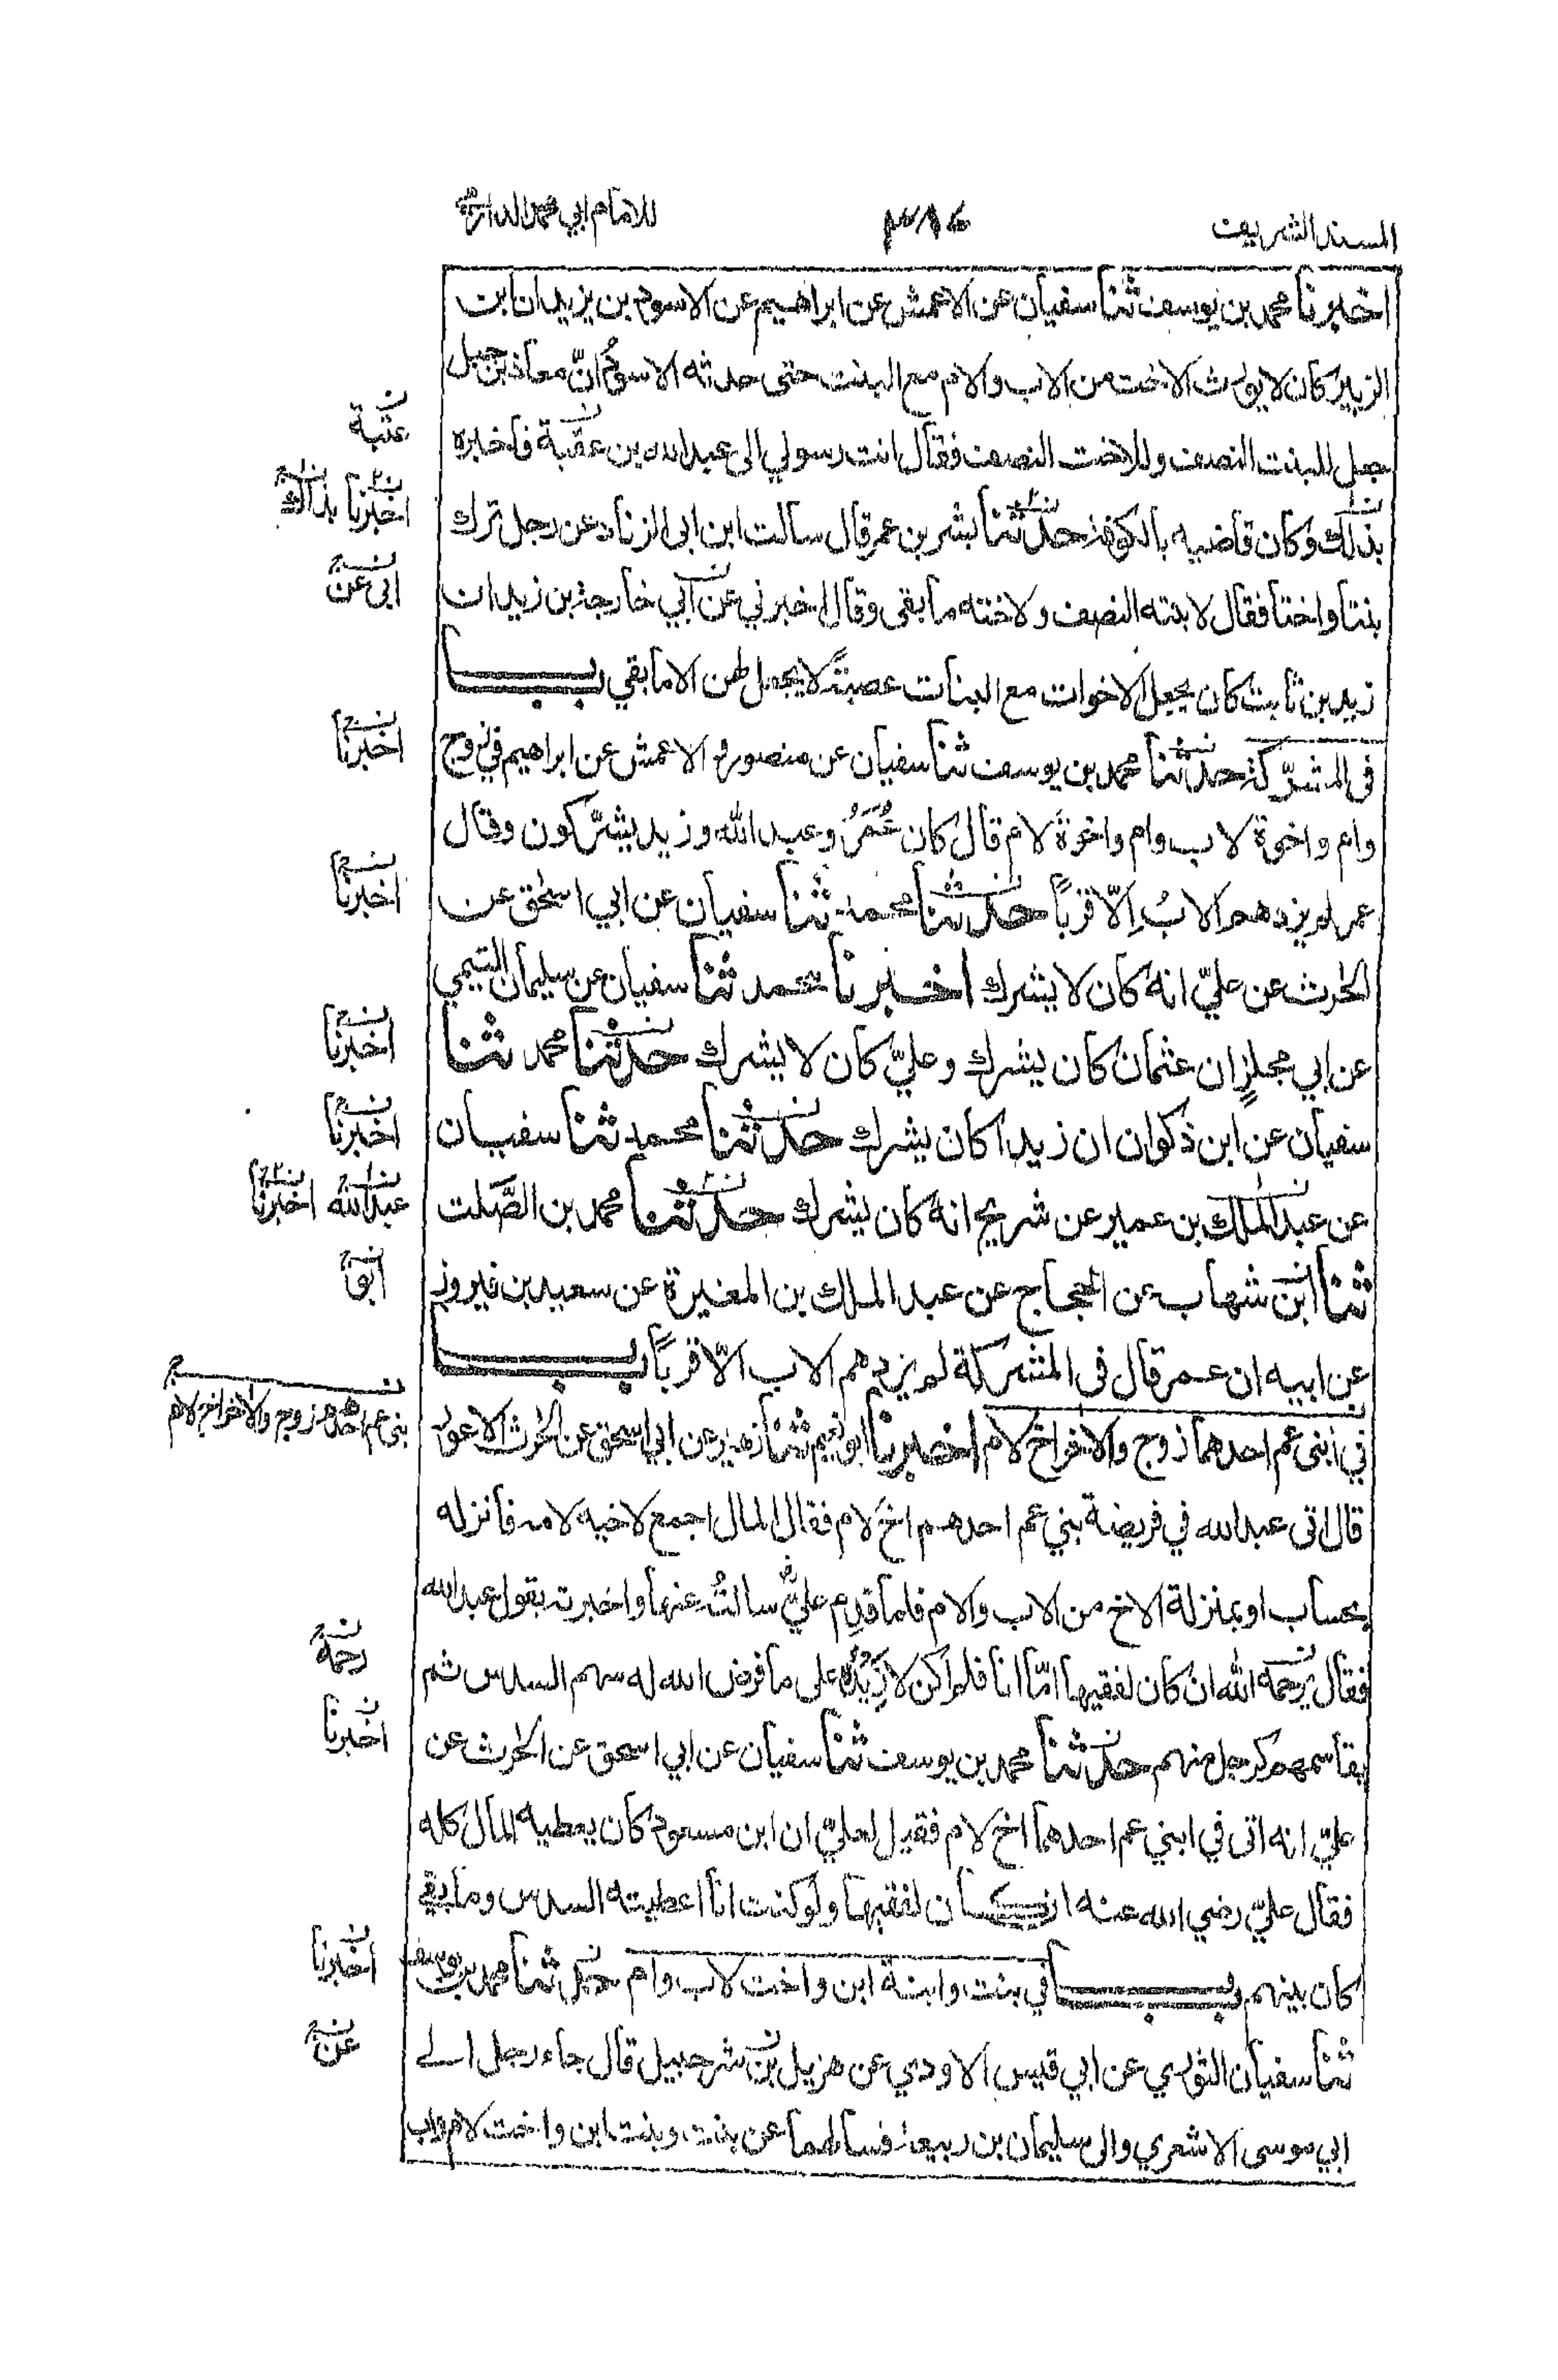 المسند الشريف
٣٨٦
للامام ابي محمد الدارمي
اخبرنا محمد بن يوسف ثنا سفيان عن الاعمش عن ابراهيم عن الاسود بن يزيد ان ابن
الزبير كان لا يورث الاخت من الاب والام مع البنت حتى حدثه الاسود انّ معاذ بن جبل
جعل للبنت النصف وللاخت النصف فقال انت رسولي الى عبد الله بن عقبة فاخبره
بذلك وكان قاضيه بالكوفة حدثنا بشر بن عمر قال سالت ابن ابي الزناد عن رجل ترك
بنتا واختا فقال لابنته النصف ولاخته ما بقى وقال اخبرني عن ابي خارجة بن زيد ان
زيد بن ثابت كان يجعل الاخوات مع البنات عصبةً لا يجعل لهن الا ما بقي باب
في المشرّكة حدثنا محمد بن يوسف ثنا سفيان عن منصور والاعمش عن ابراهيم في زوج
وام واخوة لاب وام واخوة لام قال كان عُمَرُ وعبد الله وزيد يشرّكون وقال
عمر لم يزدهم الابُ اِلّا قرباً حدثنا محمد ثنا سفيان عن ابي اسحق عن
الحرث عن عليّ انه كان لا يشرك اخبرنا محمد ثنا سفيان عن سليمان التيمي
عن ابي مجلزٍ ان عثمان كان يشرك وعليّ كان لا يشرك حدثنا محمد ثنا
سفيان عن ابن ذكوان ان زيدا كان يشرك حدثنا محمد ثنا سفيان
عن عبد الملك بن عمير عن شريح انه كان يشرك حدثنا محمد بن الصَّلت
ثنا ابن شهاب عن الحجاج عن عبد الملك بن المغيرة عن سعيد بن فيروز
عن ابيه ان عمر قال في المشركة لم يزدهم الاب الّا قرباً باب
في ابنى عم احدهما زوج والاخر اخ لام اخبرنا ابو نعيم ثنا زهير عن ابي اسحق عن الحرث الاعور
قال اتى عبد الله في فريضة بني عم احدهم اخ لام فقال المال اجمع لاخيه لامه فانزله
بحساب او بمنزلة الاخ من الاب والام فلما قدِم عليٌّ سالتُ عنها واخبرته بقول عبد الله
فقال يرحمه الله ان كان لفقيها امّا انا فلم اكن لازيده على ما فرض الله له سهم السدس ثم
يقاسمهم كرجل منهم حدثنا محمد بن يوسف ثنا سفيان عن ابي اسحق عن الحرث عن
عليّ انه اتى في ابني عم احدهما اخ لام فقيل لعليّ ان ابن مسعود كان يعطيه المال كله
فقال عليّ رضي الله عنه ان كان لفقيها ولو كنت انا اعطيته السدس وما بقي
كان بينهم باب في بنت وابنة ابن واخت لاب وام حدثنا محمد بن يوسف
ثنا سفيان الثوري عن ابي قيس الاودي عن هزيل بن شرحبيل قال جاء رجل الى
ابي موسى الاشعري والى سليمان بن ربيعة فسالهما عن بنت وبنت ابن واخت لام واب
عتبة
اخبرنا بذاك
ابي عن
اخبرنا
اخبرنا
اخبرنا
اخبرنا
عبد الله اخبرنا
ابو
بنى عم احدهم زوج والاخر اخ لام
رحمه
اخبرنا
اخبرنا
عن